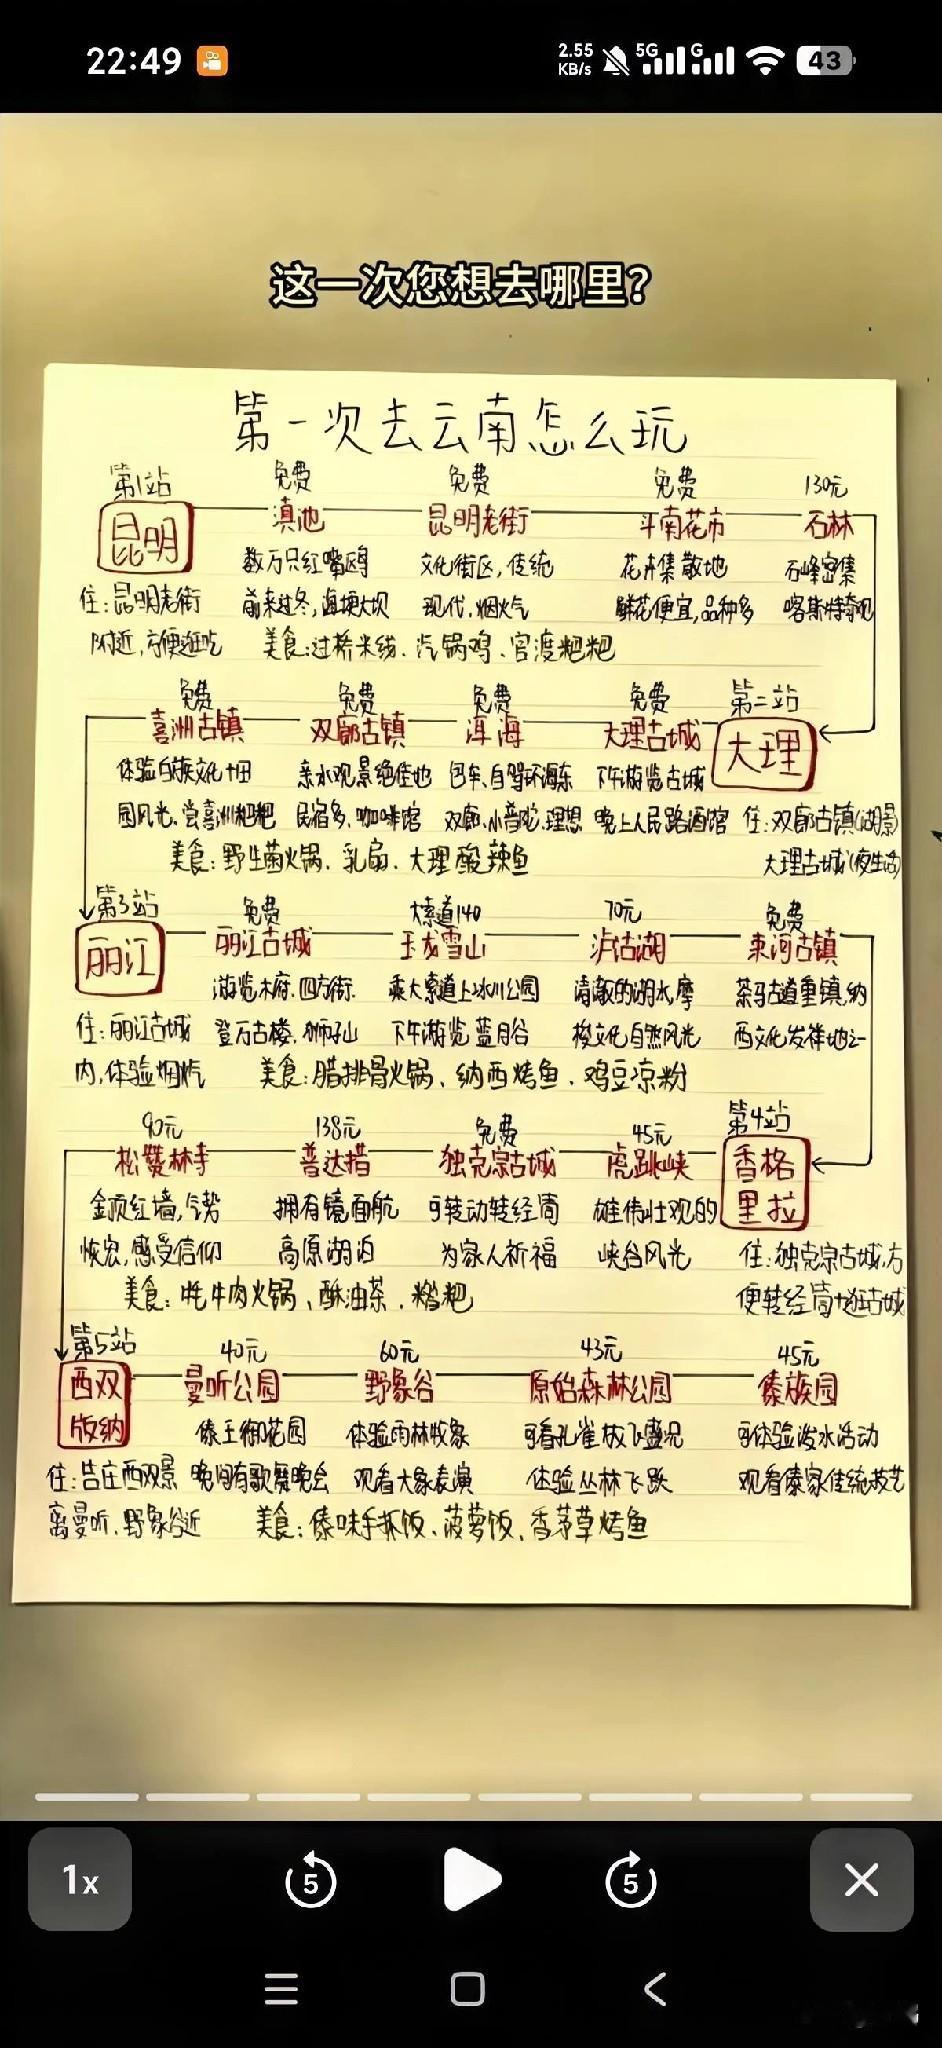 22:49
2.55 KB/s 5G G 43
这一次您想去哪里？
第一次去云南怎么玩
第1站 免费 免费 免费 130元
昆明 滇池 昆明老街 斗南花市 石林
数万只红嘴鸥 文化街区,传统 花卉集散地 石峰密集
住:昆明老街 前来过冬,海埂大坝 现代、烟火气 鲜花便宜,品种多 喀斯特奇观
附近,方便逛吃 美食:过桥米线、汽锅鸡、官渡粑粑
免费 免费 免费 免费 第二站
喜洲古镇 双廊古镇 洱海 大理古城 大理
体验白族文化 田 亲水观景绝佳地 包车、自驾环海东 下午游览古城
园风光、尝喜洲粑粑 民宿多、咖啡馆 双廊、小普陀、理想 晚上人民路酒馆 住:双廊古镇(湖景)
美食:野生菌火锅、乳扇、大理酸辣鱼 大理古城(夜生活)
第3站 免费 大索道140 70元 免费
丽江 丽江古城 玉龙雪山 泸沽湖 束河古镇
游览木府、四方街、 乘大索道上冰川公园 清澈的湖水、摩 茶马古道重镇,纳
住:丽江古城 登万古楼、狮子山 下午游览蓝月谷 梭文化自然风光 西文化发祥地之一
内,体验烟火气 美食:腊排骨火锅、纳西烤鱼、鸡豆凉粉
90元 138元 免费 45元 第4站
松赞林寺 普达措 独克宗古城 虎跳峡 香格里拉
金顶红墙,气势 拥有镜面般 可转动转经筒 雄伟壮观的
恢宏,感受信仰 高原湖泊 为家人祈福 峡谷风光 住:独克宗古城,方
美食:牦牛肉火锅、酥油茶、糌粑 便转经筒+逛古城
第5站 40元 60元 43元 45元
西双版纳 曼听公园 野象谷 原始森林公园 傣族园
傣王御花园 体验雨林牧象 可看孔雀放飞盛况 可体验泼水活动
住:告庄西双景 晚间有歌舞晚会 观看大象表演 体验丛林飞跃 观看傣家传统技艺
离曼听、野象谷近 美食:傣味手抓饭、菠萝饭、香茅草烤鱼
1x 5 5